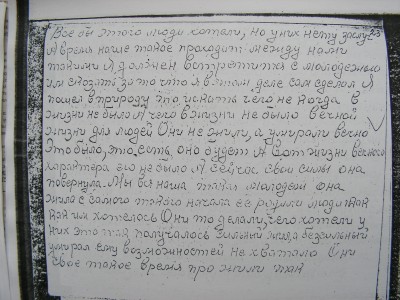 Все бы этого люди хотели, но у них нету заслуг
А время наше такое проходит между нами
такими Я должен встретится с молодежью
им сказать за то что я в этом деле сам сделал Я
пошел в природу это искать чего не когда в
жизни не было А чего в жизни не было вечной
жизни для людей Они не жили, а умирали вечно
Это было, это есть, оно будет А Вот жизни вечного
характера его не было А сейчас свои силы она
повернула. Мы вся наша такая молодежь она
жила с самого такого начала ее родили люди так
как им хотелось Они то делали, чего хотели у
них это так получалось Сильный жил, а безсильный
умирал ему возможностей не хватало Они
свое такое время про жили так